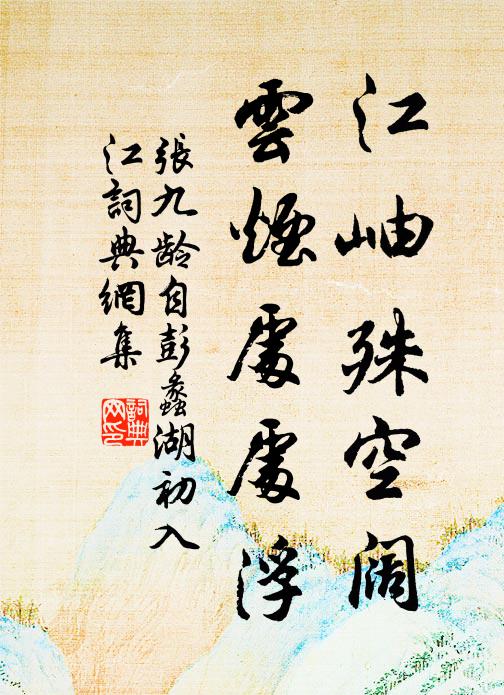 江岫殊空阔
雲煙處處浮
張九龄自彭蠡湖初入
江詞典網集
詞典
网印